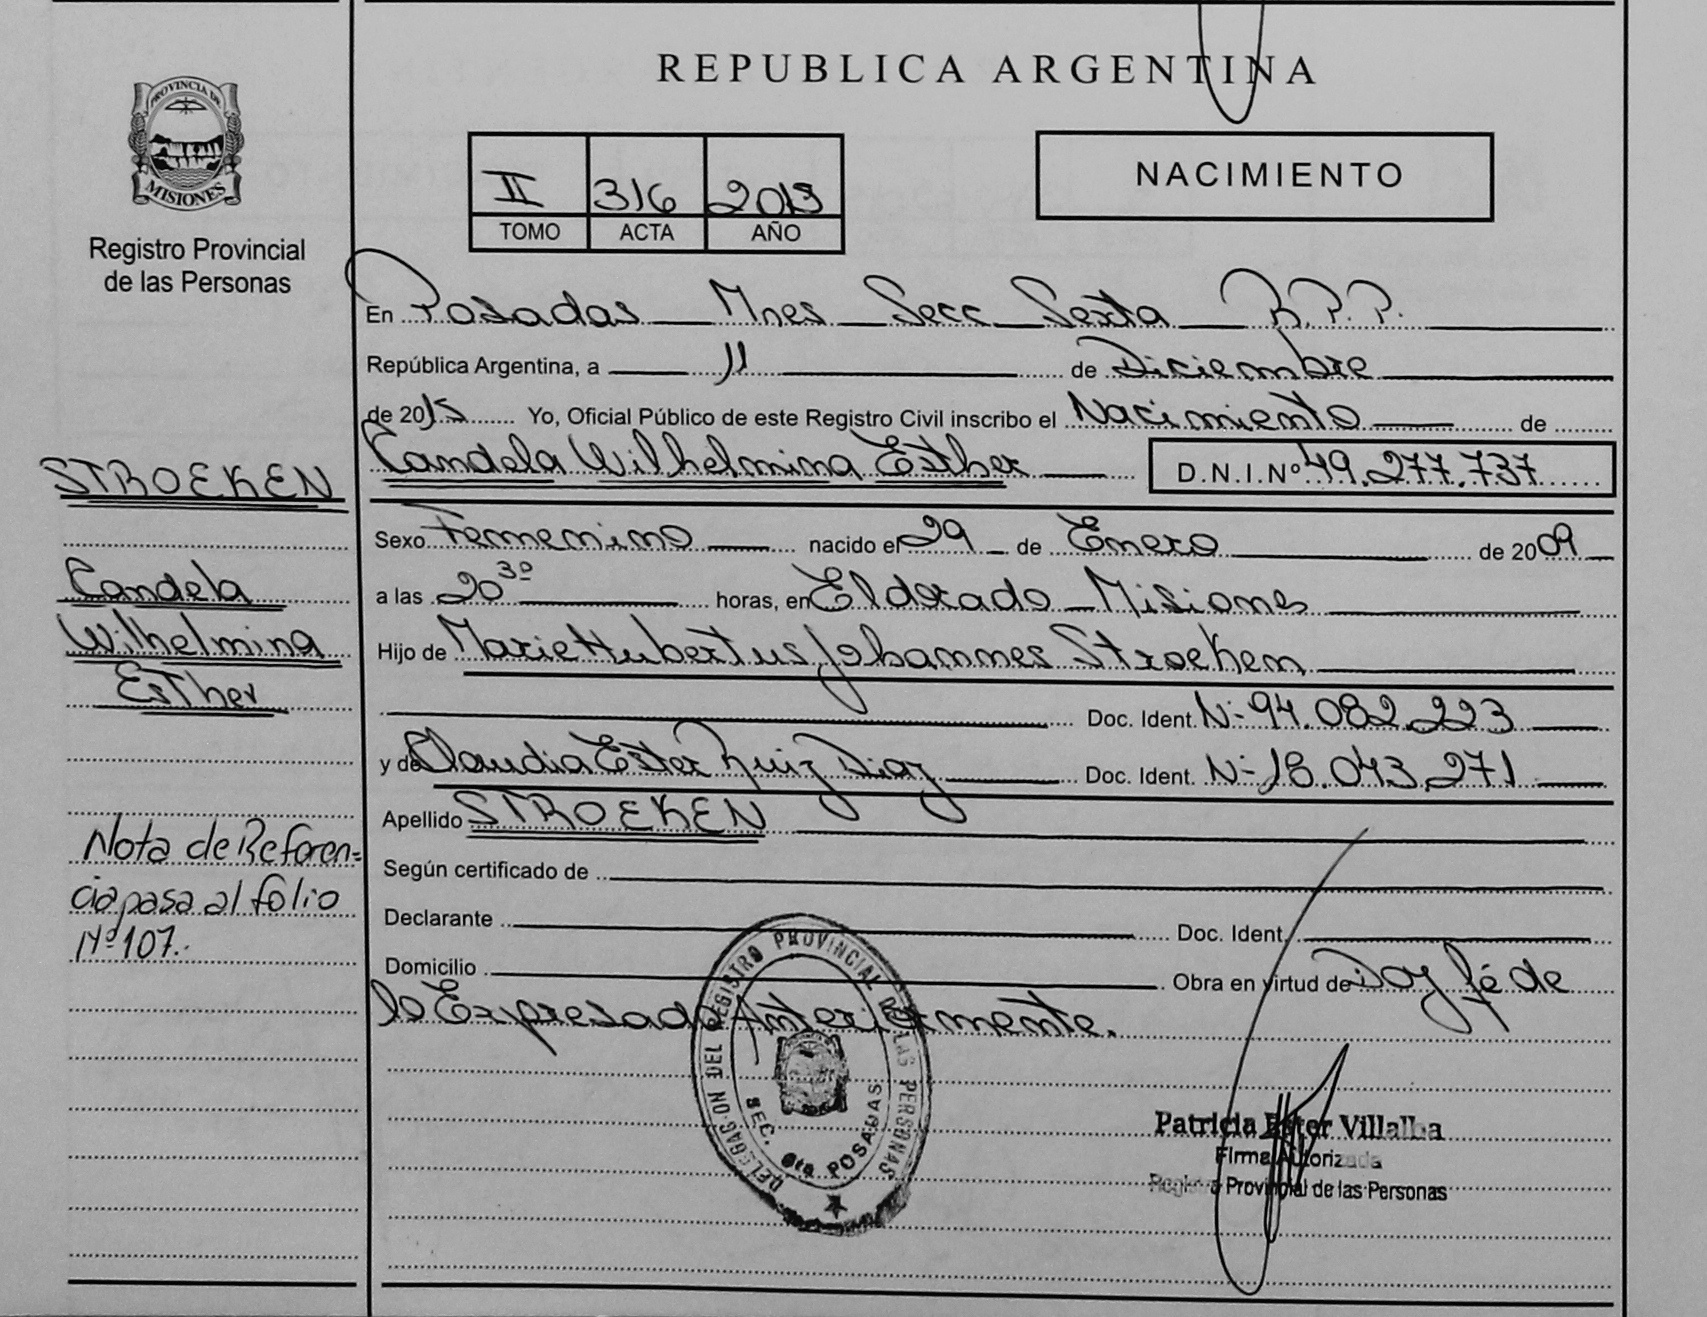 REPUBLICA ARGENTINA
PROVINCIA DE
MISIONES
Registro Provincial
de las Personas
II 316 2015
TOMO ACTA AÑO
NACIMIENTO
En Posadas Mnes Secc Sexta R.P.P.
República Argentina, a 11 de Diciembre
de 2015 Yo, Oficial Público de este Registro Civil inscribo el Nacimiento de
Candela Wilhelmina Esther D.N.I.Nº 49.277.737
Sexo Femenino nacido el 29 de Enero de 2009
a las 20 30 horas, en Eldorado Misiones
Hijo de Marie Hubertus Johannes Stroeken
Doc. Ident. Nº 94.082.223
y de Claudia Ester Ruiz Diaz Doc. Ident. Nº 18.043.271
Apellido STROEKEN
Según certificado de
Declarante Doc. Ident.
Domicilio Obra en virtud de Doy fé de
lo Expresado Anteriormente.
STROEKEN
Candela
Wilhelmina
EsTher
Nota de Referen=
cia pasa al folio
Nº 107.
DELEGACION DEL REGISTRO PROVINCIAL DE LAS PERSONAS
SEC. 6ta POSADAS
Patricia Ester Villalba
Firma Autorizada
Registro Provincial de las Personas